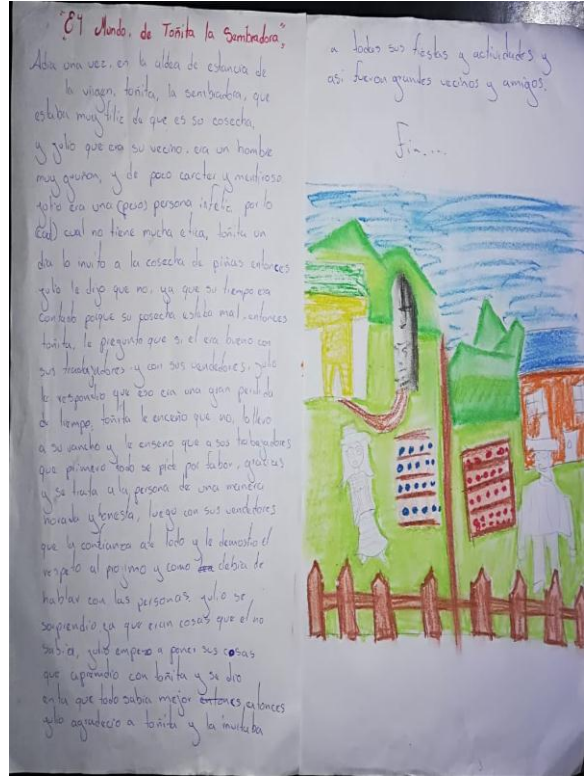 "El Mundo, de Toñita la Sembradora"
Abia una vez, en la aldea de estancia de
la virgen, toñita, la sembradora, que
estaba muy filiz da que es so cosecha,
y julio que era su vecino, era un hombre
muy gruñon, y de poco carcter y mentiroso
julio era una (pexo) persona infeliz, por lo
(cal) cual no tiene mucha etica, toñita un
dia lo invito a la cosecha de piñas entonces
julio le dijo que no, ya que su tiempo era
contado porque su cosecha estaba mal, entonces
toñita, le pregunto que si, el era bueno con
sus trabajadores y con sus vendedores, julio
le respondio que eso era una gran perdida
de tiempo, toñita le enceño que no, lo llevo
a su rancho y le enseno que a sos trabajadores
que primero todo se pide por fabor, gracias
y se trata a la persona de una manera
horada y onesta, luego con sus vendedores
que la confianza ate todo y le demostro el
respeto al projimo y como debia de
hablar con las personas, julio se
sorprendio ya que eran cosas que el no
sabia, julio empezo a poner sus cosas
que aprendio con toñita y se dio
enta que todo sabia mejor entonces, entonces
julio agradecio a toñita y la invitaba
a todas sus fiestas y actividades y
asi fueron grandes vecinos y amigos.
Fin....